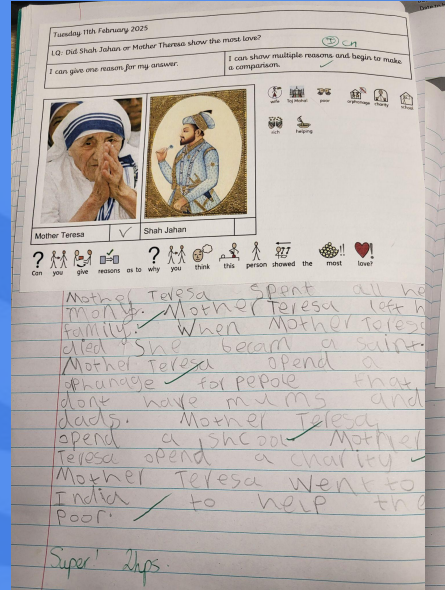 Tuesday 11th February 2025
LQ: Did Shah Jahan or Mother Theresa show the most love?
I can give one reason for my answer.
I can show multiple reasons and begin to make a comparison.
wife Taj Mahal poor orphanage charity school
rich helping
Mother Teresa
Shah Jahan
? Can you give reasons as to ? why you think this person showed the most love?
Mother Teresa spent all he
mony. Mother Teresa left h
family. When Mother Teresa
died she becam a saint.
Mother Teresa opend a
orphunage for pepole that
dont have mums and
dads. Mother Teresa
opend a shcool Mother
Teresa opend a charity
Mother Teresa went to
India to help the
poor.
Super! 2hps.